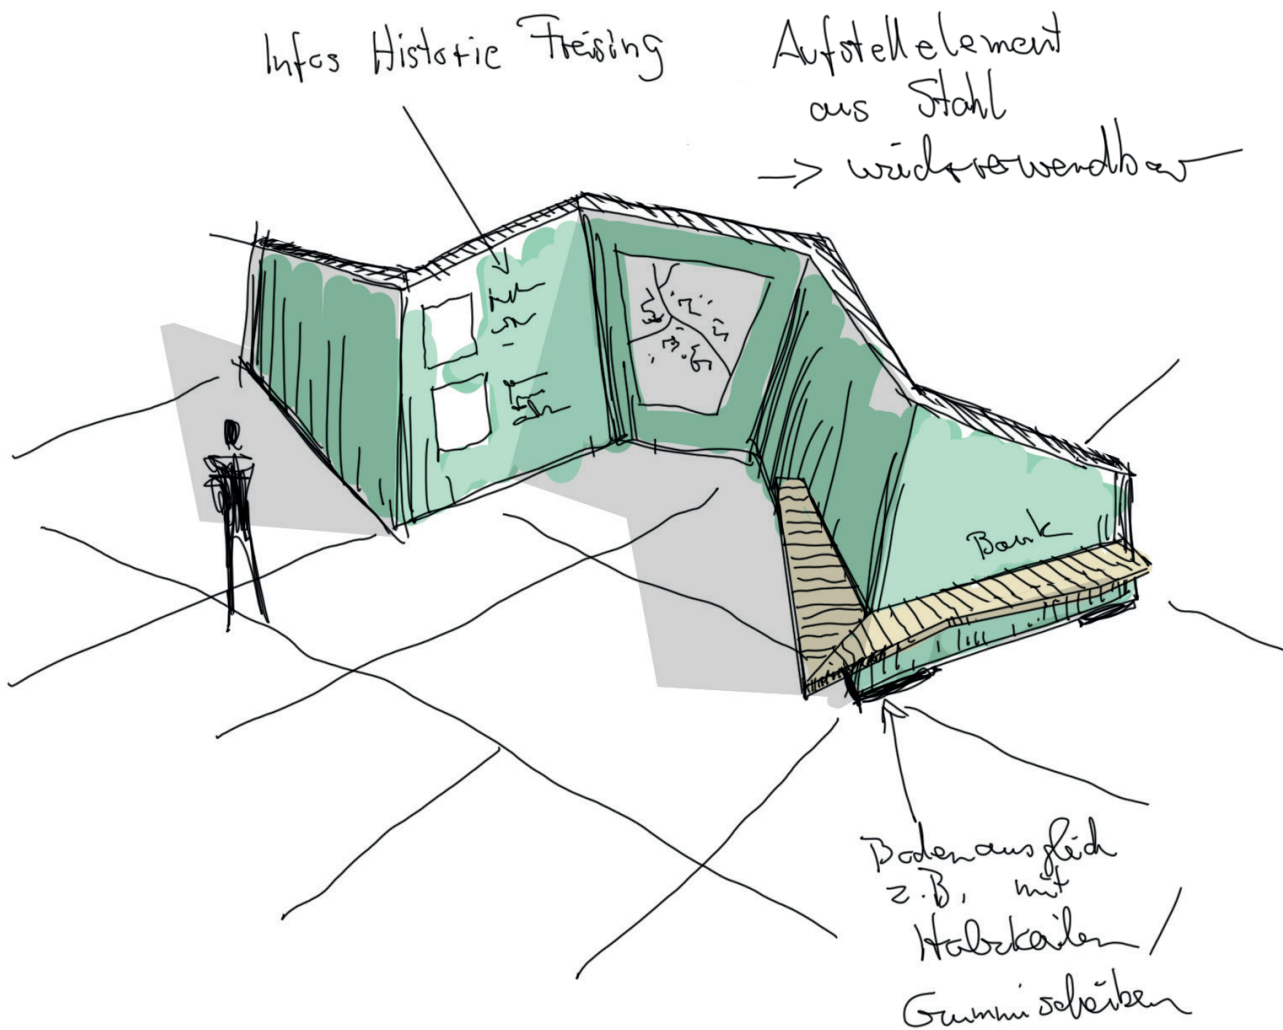 Infos Historie Freising
Aufstellelement
aus Stahl
-> wiederverwendbar
Bank
Bodenausgleich
z.B. mit
Holzkeilen /
Gummischeiben